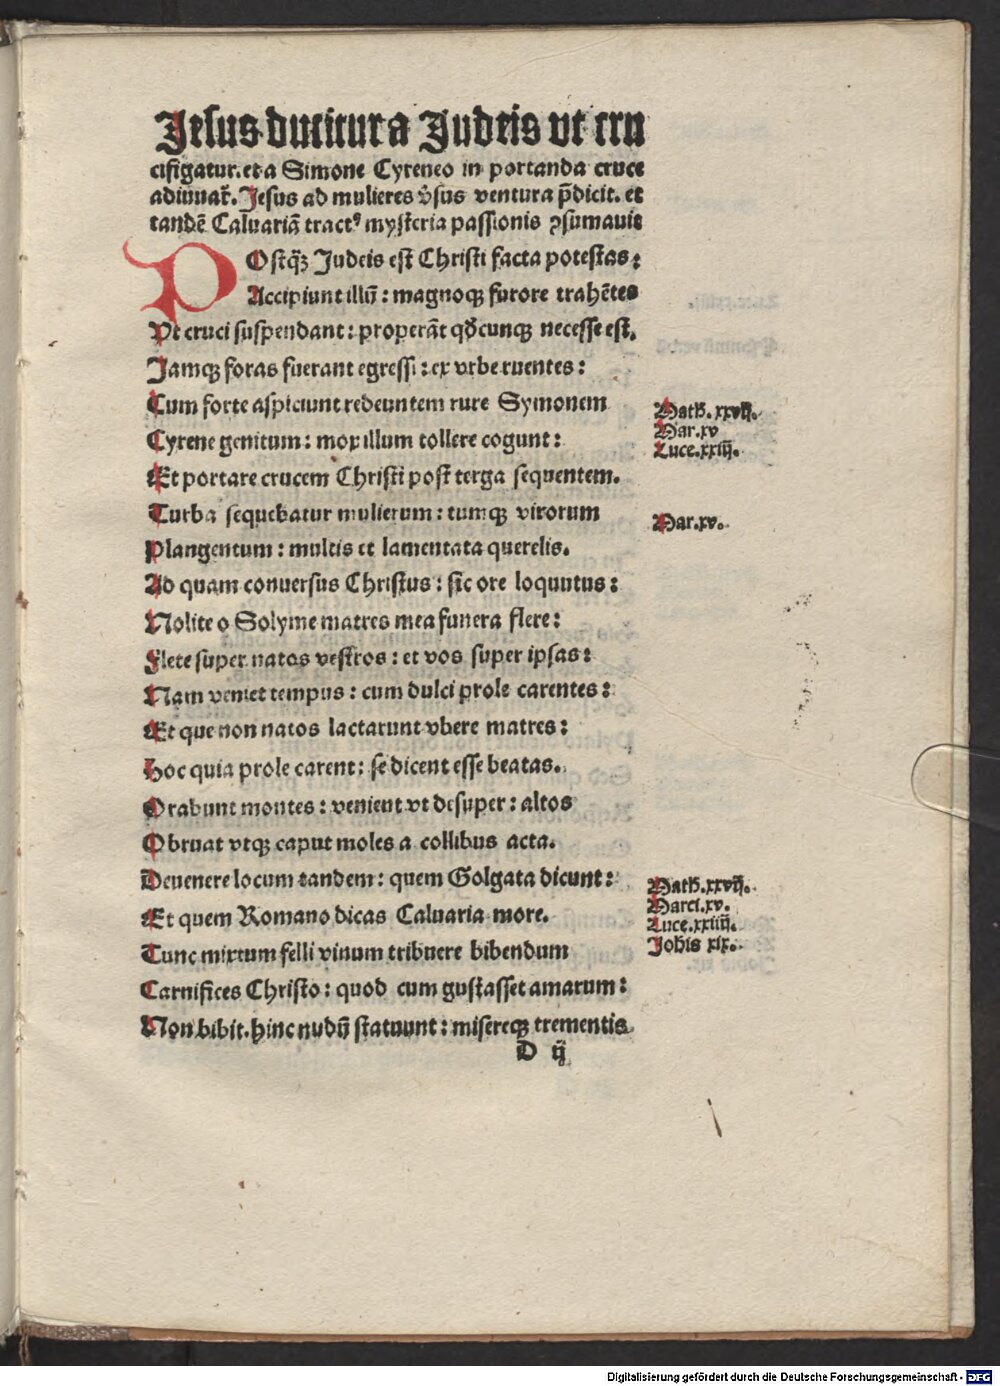 Jesus ducitur a Judeis vt cru
cifigatur. et a Simone Cyreneo in portanda cruce
adiuuat᷑. Jesus ad mulieres v̾sus ventura p̄dicit. et
tandē Caluariā tractꝰ mysteria passionis ꝯsumauit
POstq̄ꝫ Judeis est Christi facta potestas:
Accipiunt illū: magnoqꝫ furore trahētes
Vt cruci suspendant: properāt qd̓cunqꝫ necesse est.
Jamqꝫ foras fuerant egressi: ex vrbe ruentes:
Cum forte aspiciunt redeuntem rure Symonem
Math. xxvij.
Mar. xv
Cyrene genitum: mox illum tollere cogunt:
Luce. xxiij.
Et portare crucem Christi post terga sequentem.
Turba sequebatur mulierum: tumqꝫ virorum
Mar. xv.
Plangentum: multis et lamentata querelis.
Ad quam conuersus Christus: sic ore loquutus:
Nolite o Solyme matres mea funera flere:
Flete super natos vestros: et vos super ipsas:
Nam veniet tempus: cum dulci prole carentes:
Et que non natos lactarunt vbere matres:
Hoc quia prole carent: se dicent esse beatas.
Orabunt montes: venient vt desuper: altos
Obruat vtqꝫ caput moles a collibus acta.
Deuenere locum tandem: quem Golgata dicunt:
Math. xxvij.
Marci. xv.
Et quem Romano dicas Caluaria more.
Luce. xxiiij.
Johis xix.
Tunc mixtum felli vinum tribuere bibendum
Carnifices Christo: quod cum gustasset amarum:
Non bibit. hinc nudū statuunt: misereqꝫ trementis
D ij
Digitalisierung gefördert durch die Deutsche Forschungsgemeinschaft - DFG